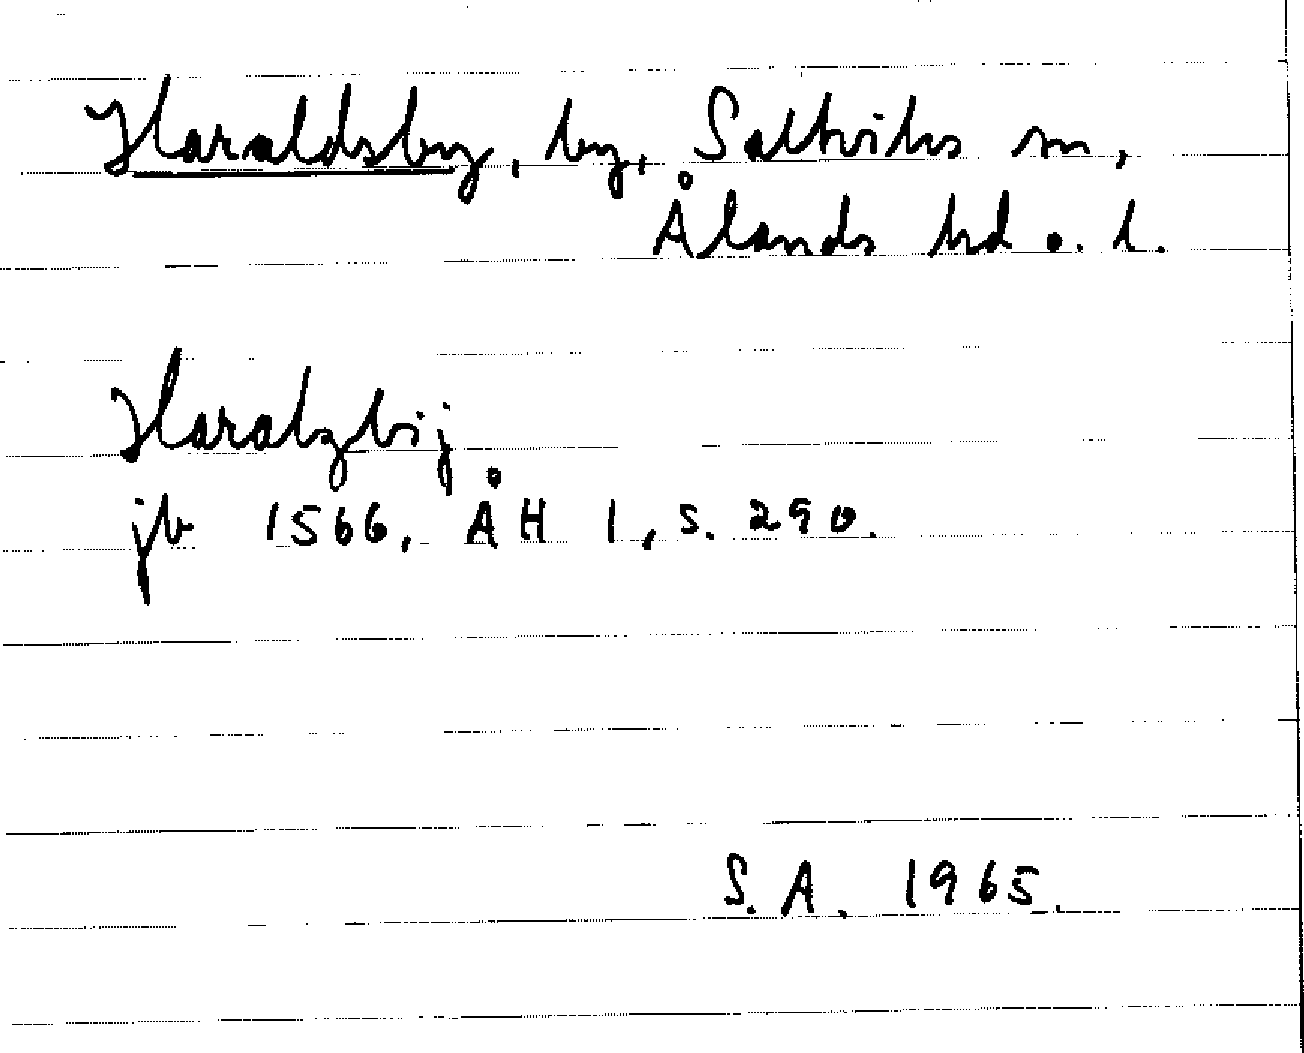 Haraldsby, by, Saltviks sn,
Ålands hd o. l.
Haralzbij
jb 1566, ÅH 1, s. 290.
S. A. 1965.